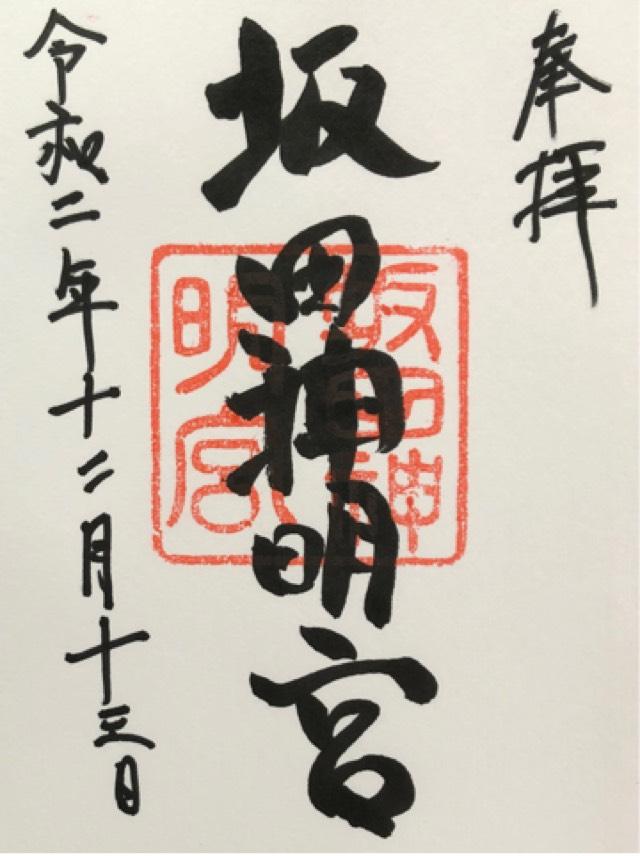 奉拝
坂田神明宮
坂田神
明宮
令和二年十二月十三日